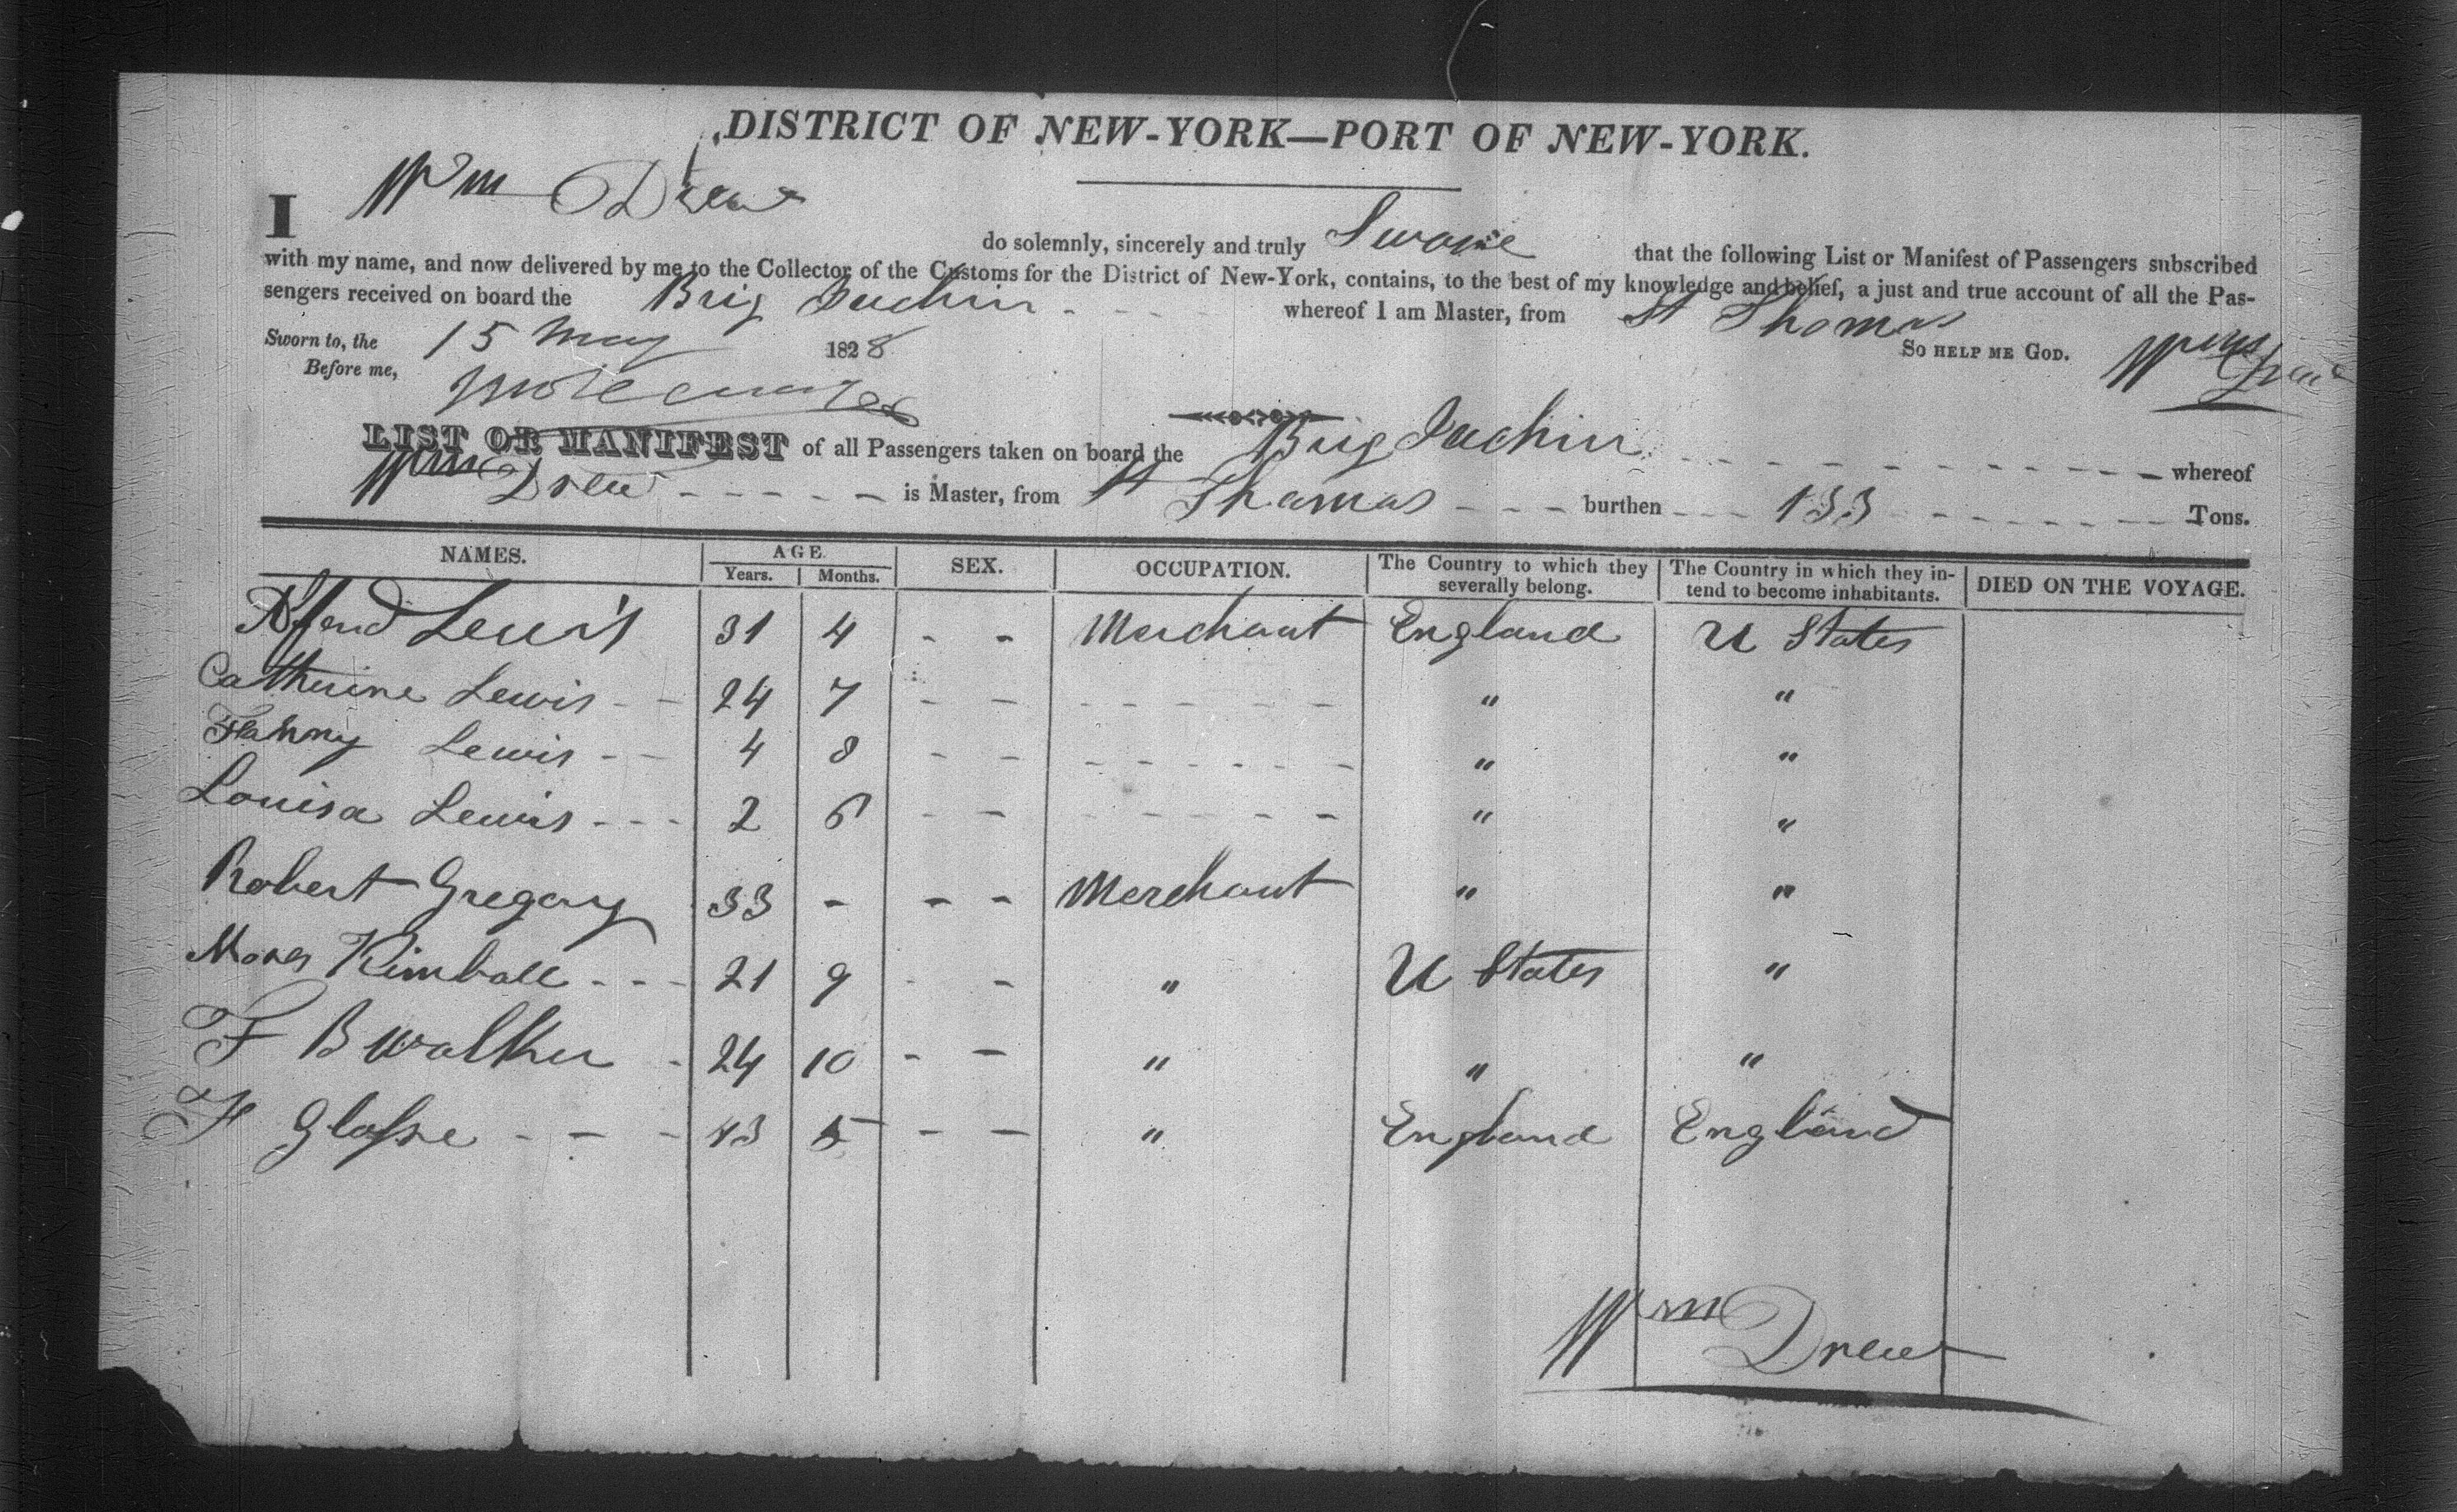 DISTRICT OF NEW-YORK—PORT OF NEW-YORK.
I Wm Drew do solemnly, sincerely and truly Swore that the following List or Manifest of Passengers subscribed
with my name, and now delivered by me to the Collector of the Customs for the District of New-York, contains, to the best of my knowledge and belief, a just and true account of all the Pas-
sengers received on board the Brig Jachin whereof I am Master, from St Thomas
Sworn to, the 15 May 1828 SO HELP ME GOD. Wm Drew
Before me,
LIST OR MANIFEST of all Passengers taken on board the Brig Jachin whereof
Wm Drew is Master, from St Thomas burthen 133 Tons.
NAMES. AGE. Years. Months. SEX. OCCUPATION. The Country to which they severally belong. The Country in which they in-tend to become inhabitants. DIED ON THE VOYAGE.
Alfred Lewis 31 4 - - Merchant England U States
Catherine Lewis - - 24 7 - - - - - - - - " "
Fanny Lewis - - 4 8 - - - - - - - - " "
Louisa Lewis - - - 2 6 - - - - - - - - " "
Robert Gregory 33 - - - Merchant " "
Moses Kimball - - - 21 9 - - " U States "
F B Walker - 24 10 - - " " "
F Glasse - - - 43 5 - - " England England
Wm Drew